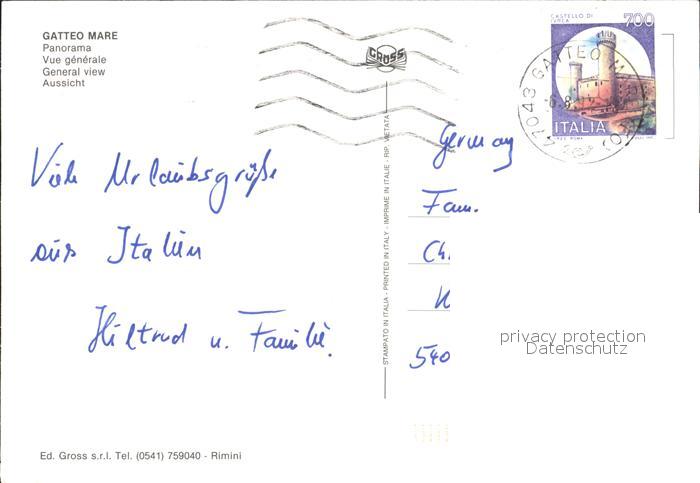 GATTEO MARE
Panorama
Vue générale
General view
Aussicht
GROSS
CASTELLO DI
700
ITALIA
47043 GATTEO M
Viele Urlaubsgrüße
aus Italien
Hiltrud u. Familie.
STAMPATO IN ITALIA - PRINTED IN ITALY - IMPRIME IN ITALIE - RIP. VIETATA
Germany
Fam.
Ch
540
privacy protection
Datenschutz
Ed. Gross s.r.l. Tel. (0541) 759040 - Rimini